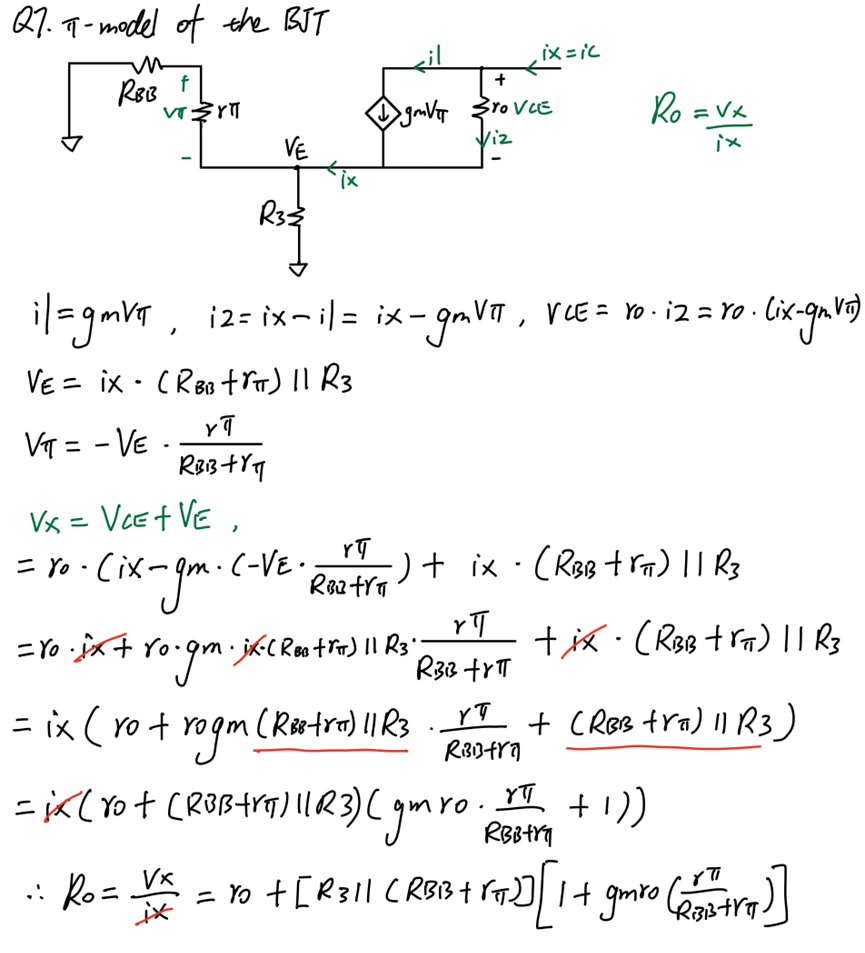 Q7. π-model of the BJT
RBB
+
vπ
rπ
-
VE
R3
ix
i1
gmVπ
+
ro
VCE
i2
-
ix=ic
Ro = vx/ix
i1=gmVπ, i2=ix-i1= ix-gmVπ, VCE= ro·i2=ro·(ix-gmVπ)
VE = ix·(RBB+rπ)||R3
Vπ = -VE · rπ/(RBB+rπ)
Vx = VCE+VE,
= ro·(ix-gm·(-VE·rπ/(RBB+rπ)) + ix·(RBB+rπ)||R3
=ro·ix+ro·gm·ix·(RBB+rπ)||R3·rπ/(RBB+rπ) + ix·(RBB+rπ)||R3
= ix(ro+rogm(RBB+rπ)||R3·rπ/(RBB+rπ) + (RBB+rπ)||R3)
= ix(ro+(RBB+rπ)||R3)(gmro·rπ/(RBB+rπ) + 1))
∴ Ro = Vx/ix = ro+[R3||(RBB+rπ)][1+gmro(rπ/(RBB+rπ))]